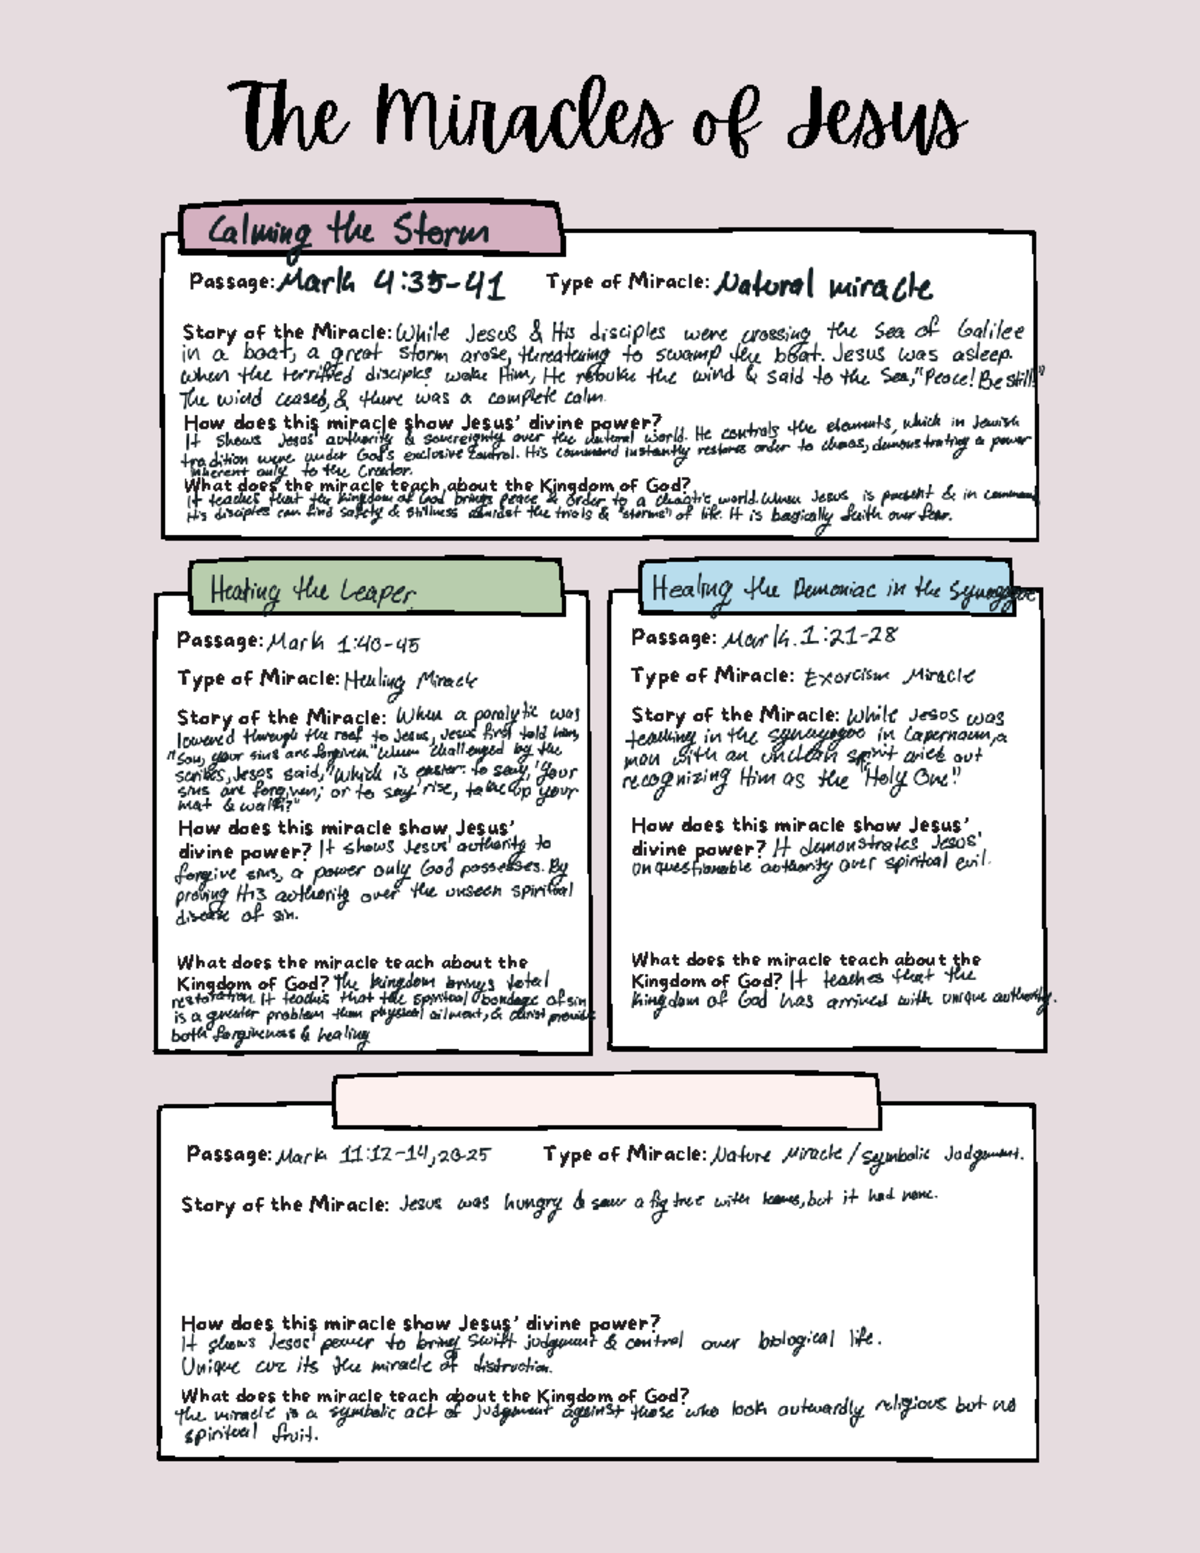 The Miracles of Jesus
Calming the Storm
Passage: Mark 4:35-41 Type of Miracle: Natural miracle
Story of the Miracle: While Jesus & His disciples were crossing the Sea of Galilee
in a boat, a great storm arose, threatening to swamp the boat. Jesus was asleep.
When the terrified disciples woke Him, He rebuke the wind & said to the Sea, "Peace! Be still!"
The wind ceased, & there was a complete calm.
How does this miracle show Jesus' divine power?
It shows Jesus' authority & sovereignty over the natural world. He controls the elements, which in Jewish
tradition were under God's exclusive control. His command instantly restores order to chaos, demonstrating a power
inherent only to the Creator.
What does the miracle teach about the Kingdom of God?
It teaches that the kingdom of God brings peace & order to a chaotic world. When Jesus is present & in command
His disciples can find safety & stillness amidst the trials & "storms" of life. It is basically faith over fear.
Healing the Leaper
Passage: Mark 1:40-45
Type of Miracle: Healing Miracle
Story of the Miracle: When a paralytic was
lowered through the roof to Jesus, Jesus first told him,
"Son, your sins are forgiven." When challenged by the
scribes, Jesus said, "Which is easier: to say, 'Your
sins are forgiven,' or to say 'rise, take up your
mat & walk?"
How does this miracle show Jesus'
divine power? It shows Jesus' authority to
forgive sins, a power only God possesses. By
proving His authority over the unseen spiritual
disease of sin.
What does the miracle teach about the
Kingdom of God? The kingdom brings total
restoration. It teaches that the spiritual bondage of sin
is a greater problem than physical ailment, & Christ provide
both forgiveness & healing
Healing the Demoniac in the Synagogue
Passage: Mark. 1:21-28
Type of Miracle: Exorcism Miracle
Story of the Miracle: While Jesus was
teaching in the synagogoe in Capernaum, a
man with an unclean spirit cried out
recognizing Him as the "Holy One!"
How does this miracle show Jesus'
divine power? It demonstrates Jesus'
unquestionable authority over spiritual evil.
What does the miracle teach about the
Kingdom of God? It teaches that the
kingdom of God has arrived with unique authority.
Passage: Mark 11:12-14, 20-25 Type of Miracle: Nature Miracle / Symbolic Judgement.
Story of the Miracle: Jesus was hungry & saw a fig tree with leaves, but it had none.
How does this miracle show Jesus' divine power?
It shows Jesus' power to bring swift judgment & control over biological life.
Unique cuz its the miracle of distruction.
What does the miracle teach about the Kingdom of God?
The miracle is a symbolic act of judgement against those who look outwardly religious but no
spiritual fruit.